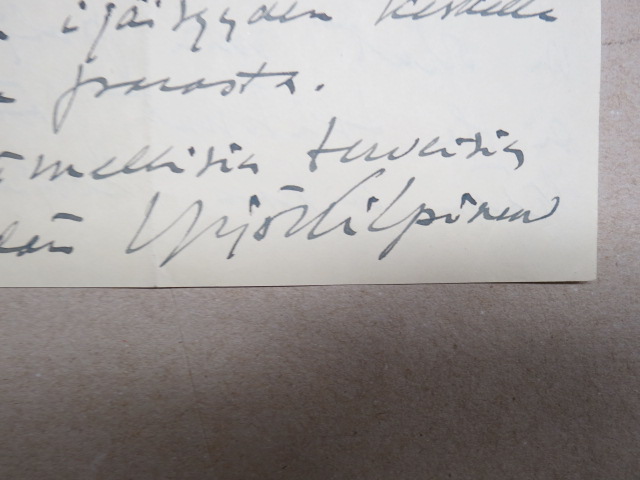 n ijäisyyden keskelle
n parasta.
mellisiä terveisiä
dän Yrjö Kilpinen